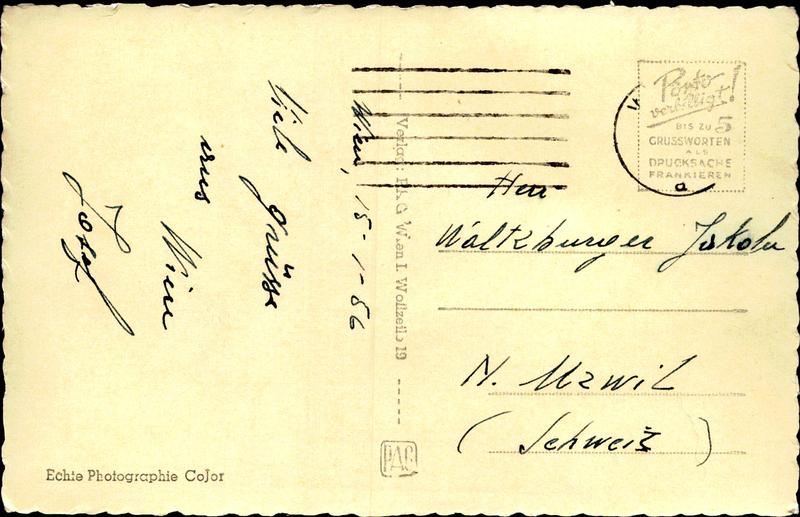 Wien, 15-1-56
Viele
Grüsse
aus
Wien
Josef
Verlag: PAG Wien I. Wollzeile 19
PAG
Echte Photographie Color
Porto
verbilligt!
BIS ZU 5
GRUSSWORTEN
ALS
DRUCKSACHE
FRANKIEREN
a
Herr
Waltzburger Jakob
N. Uzwil
(Schweiz)